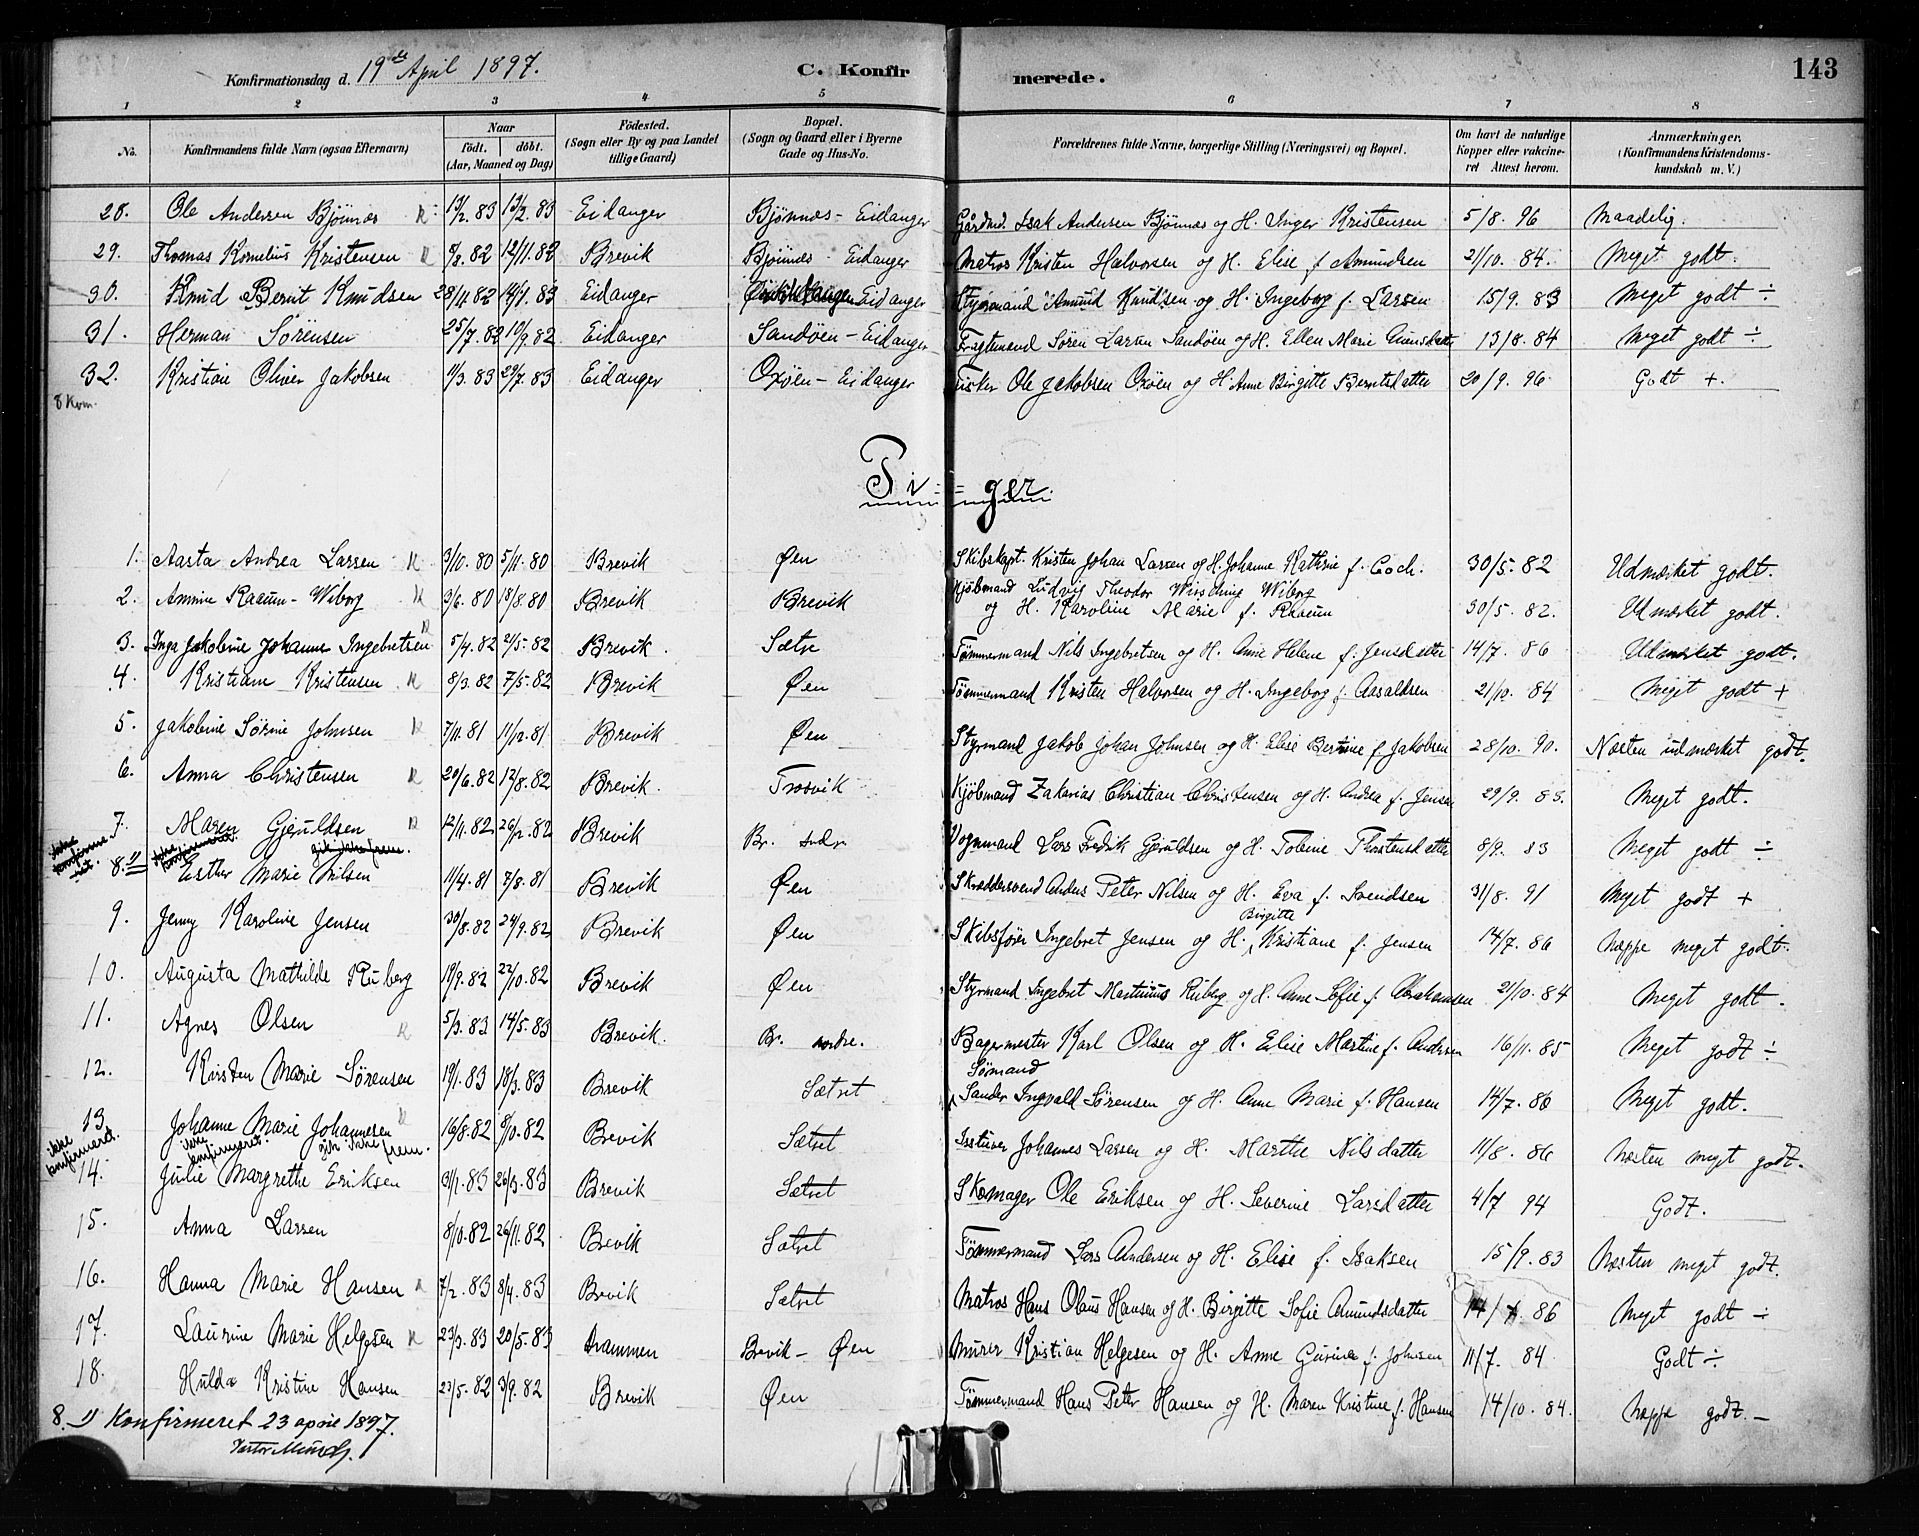 Konfirmationsdag d. 19de April 1897.
C. Konfirmerede.
143
1 2 3 4 5 6 7 8
No.
Konfirmandens fulde Navn (ogsaa Efternavn)
Naar født. døbt. (Aar, Maaned og Dag)
Fødested. (Sogn eller By og paa Landet tillige Gaard)
Bopæl. (Sogn og Gaard eller i Byerne Gade og Hus-No.
Forældrenes fulde Navne, borgerlige Stilling (Næringsvei) og Bopæl.
Om havt de naturlige Kopper eller vakcineret Attest herom.
Anmærkninger. (Konfirmandens Kristendomskundskab m. V.)
28. Ole Andersen Bjønnes K 83 83 Eidanger Bjønnæs - Eidanger Gårdmd. Isak Andersen Bjønnæs og H. Inger Kristensen 5/8. 96 Maadelig.
29. Thomas Kornelius Kristensen K 82 12/11. 82 Brevik Bjønnæs - Eidanger Matros Kristen Halvorsen og H. Elise f. Amundsen 21/10. 84. Meget godt.
30. Knud Bernt Knudsen 28/11. 82 14/1. 83 Eidanger Eidanger Styrmand Amund Knudsen og H. Ingeborg f. Larsen 15/9. 83 Meget godt ÷
31. Herman Sørensen 25/7. 82 10/9. 82 Eidanger Sandøen - Eidanger Fragtemand Søren Larsen Sandøen og H. Ellen Marie 13/8. 84 Meget godt ÷
32. Kristian Oliver Jakobsen 11/3. 83 29/7. 83 Eidanger Oxøen - Eidanger Fisker Ole Jakobsen Oxøen og H Anne Birgitte Berntsdatter 20/9. 96 Godt +.
8 Kom.
Piger.
1. Aasta Andrea Larsen K 3/10. 80 5/11. 80 Brevik Øen Skibskapt. Kristen Johan Larsen og H. Johanne Kathrine f. Coch. 30/5. 82 Udmærket godt.
2. Raaum - Wiborg K 3/6. 80 18/8. 80 Brevik Brevik Kjøbmand Ludvig Theodor Wiborg
og H. Karoline Marie f. Raaum 30/5. 82. Udmærket godt.
3. Inga Jakobine Johanne Ingebretsen K 5/4. 82 21/5. 82 Brevik. Sætre Tømmermand Nils Ingebretsen og H. Anne Helene f. Jensdatter 14/7. 86 Udmærket godt.
4. Kristiane Kristensen K 8/3. 82 7/5. 82 Brevik Øen Tømmermand Kristen Halvorsen og H. Ingeborg f. Aasaldsen 21/10. 84 Meget godt +
5. Jakobine Sørine Johnsen K 7/11. 81 11/12. 81 Brevik Øen Styrmand Jakob Johan Johnsen og H. Elise Bertine f. Jakobsen 28/10. 90. Næsten udmærket godt.
6. Anna Christensen K 20/6. 82 12/8. 82 Brevik. Trosvik Kjøbmand Zakarias Christian Christensen og H. Andrea f. Jensen 29/9. 83. Meget godt.
7. Maren Gjeruldsen K 12/11. 82 26/12. 82 Brevik Br. Vognmand Lars Fredrik Gjeruldsen og H. Tobine Thorstensdatter 8/9. 83 Meget godt ÷
ikke konfirmeret. ikke konfirmeret. gik ikke frem.
8. 1) Esther Marie Nilsen 11/4. 81 7/8. 81 Brevik Øen Skræddersvend Anders Peter Nilsen og H. Eva f. Svendsen 31/8. 91 Meget godt +
9. Jenny Karoline Jensen 30/8. 82 24/9. 82 Brevik Øen Skibsfører Ingebret Jensen og H. Birgitte Kristiane f. Jensen 14/7. 86 næppe meget godt.
10. Augusta Mathilde Ruberg 19/9. 82 22/10. 82 Brevik Øen Styrmand Ingebret Martinius Ruberg og H. Anne Sofie f. Abrahamsen 21/10. 84 Meget godt.
11. Agnes Olsen K 5/3. 83 14/5. 83 Brevik. Br. Bagermester Karl Olsen og H. Elise Martine f. Andersen 16/11. 85 Meget godt ÷
12. Kristen Marie Sørensen 19/1. 83 18/3. 83 Brevik Sætret Sømand Sander Ingvald Sørensen og H. Anne Marie f. Hansen 14/7. 86 Meget godt.
13 Johanne Marie Johannesen K 16/8. 82 8/10. 82 Brevik Sætret Johannes Larsen og H. Marthe Nilsdatter 11/8. 86 næsten meget godt.
ikke konfirmerd. ikke konfirmeret. gik ikke frem.
14. Julie Margrethe Eriksen 31/1. 83 26/3. 83 Brevik Sætret Skomager Ole Eriksen og H. Severine Larsdatter 4/7 94 Godt.
15. Anna Larsen 8/10. 82 26/11. 82 Brevik Sætret Tømmermand Lars Andersen og H. Elise f. Isaksen 15/9. 83 næsten meget godt.
16. Hanna Marie Hansen K 7/2. 83 8/4. 83 Brevik Sætret Matros Hans Olaus Hansen og H. Birgitte Sofie Amundsdatter 14/7. 86 Meget godt ÷
17. Laurine Marie Helgesen K 23/3. 83 20/5. 83 Drammen Brevik - Øen Murer Kristian Helgesen og H. Anne Gurine f. Johnsen 11/7. 84 Godt ÷
18. Hulda Kristine Hansen 23/5. 82 3/9. 82 Brevik Øen Tømmermand Hans Peter Hansen og H. Maren Kristine f. Hansen 14/10. 84. næppe godt. -
8. 1) Konfirmeret 23 april 1897.